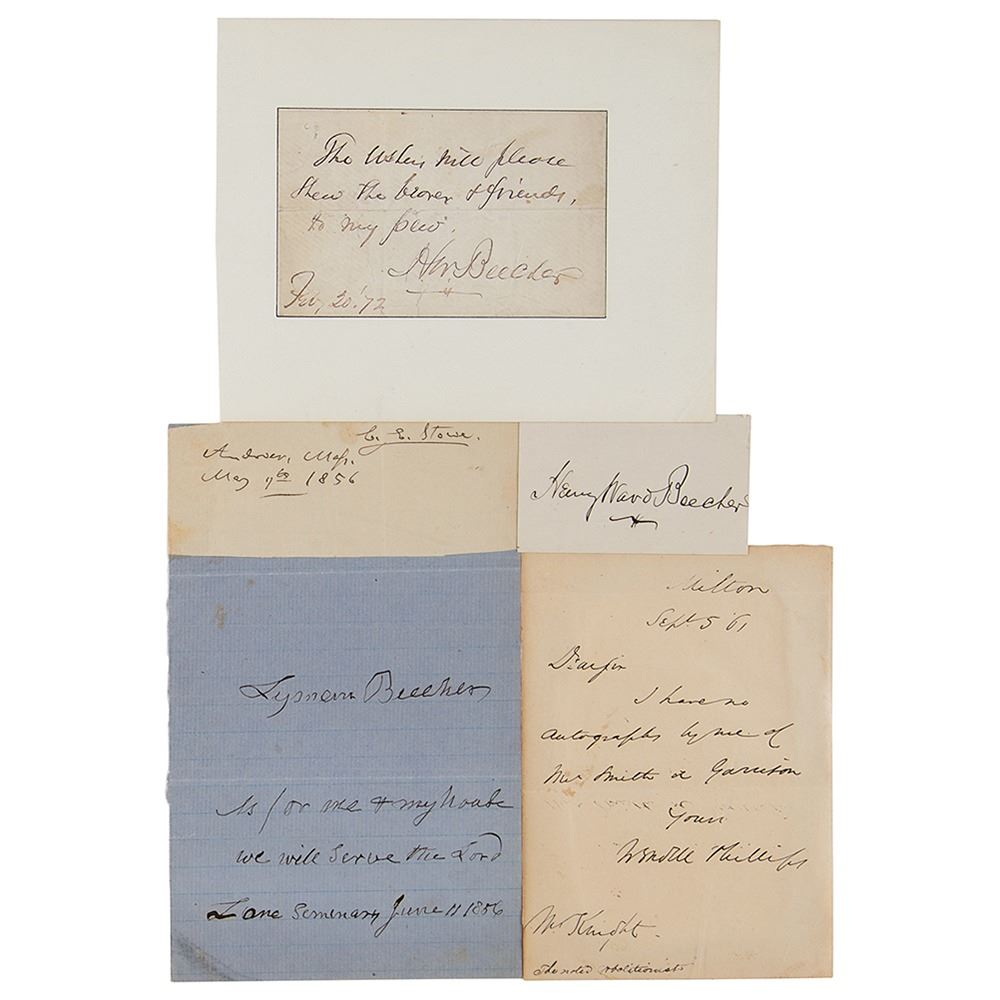 The Ushers will please
shew the bearer & friends,
to my pew.
H.W. Beecher
Feb, 20. '72
C. E. Stowe.
Andover, Mass.
May 1856
Henry Ward Beecher
Lyman Beecher
As for me & my house
we will serve the Lord
Lane Seminary June 11 1856
Milton
Sept 5 '61
Dear sir
I have no
autographs by me of
Mr Smith or Garrison
Yours
Wendell Phillips
Mr Knight.
The noted Abolitionist